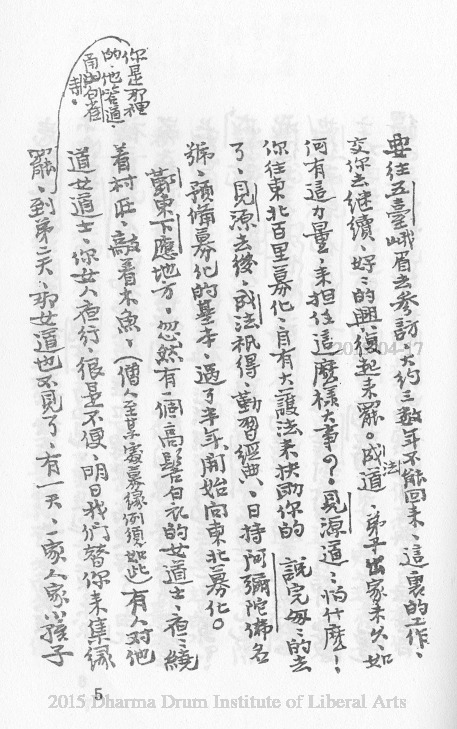 要往五臺峨眉去參訪、大約三數年不能回来、這裏的工作、
交你去继續、好々的興復起来罷。成法道、弟子出家未久、如
何有這力量、来担任這麼樣大事？。見源道：怕什麼！
你往東北百里募化、自有大護法来扶助你的 說完匆々的去
了、見源去後、成法祇得、勤習經典、日持阿彌陀佛名
號、預備募化的基本、過了半年、開始向東北募化。
鄭東下應地方、忽然有一個高髻白衣的女道士、夜々繞
着村庄、敲着木魚、（僧人至某處募缘例須如此）有人对他
道女道士、你女人夜行、很是不便、明日我們替你来集缘
罷、到第二天、那女道也不見了、有一天、一家人家小孩子
你是那裡
的、他答道、
甬白雀
寺。
5
2015 Dharma Drum Institute of Liberal Arts